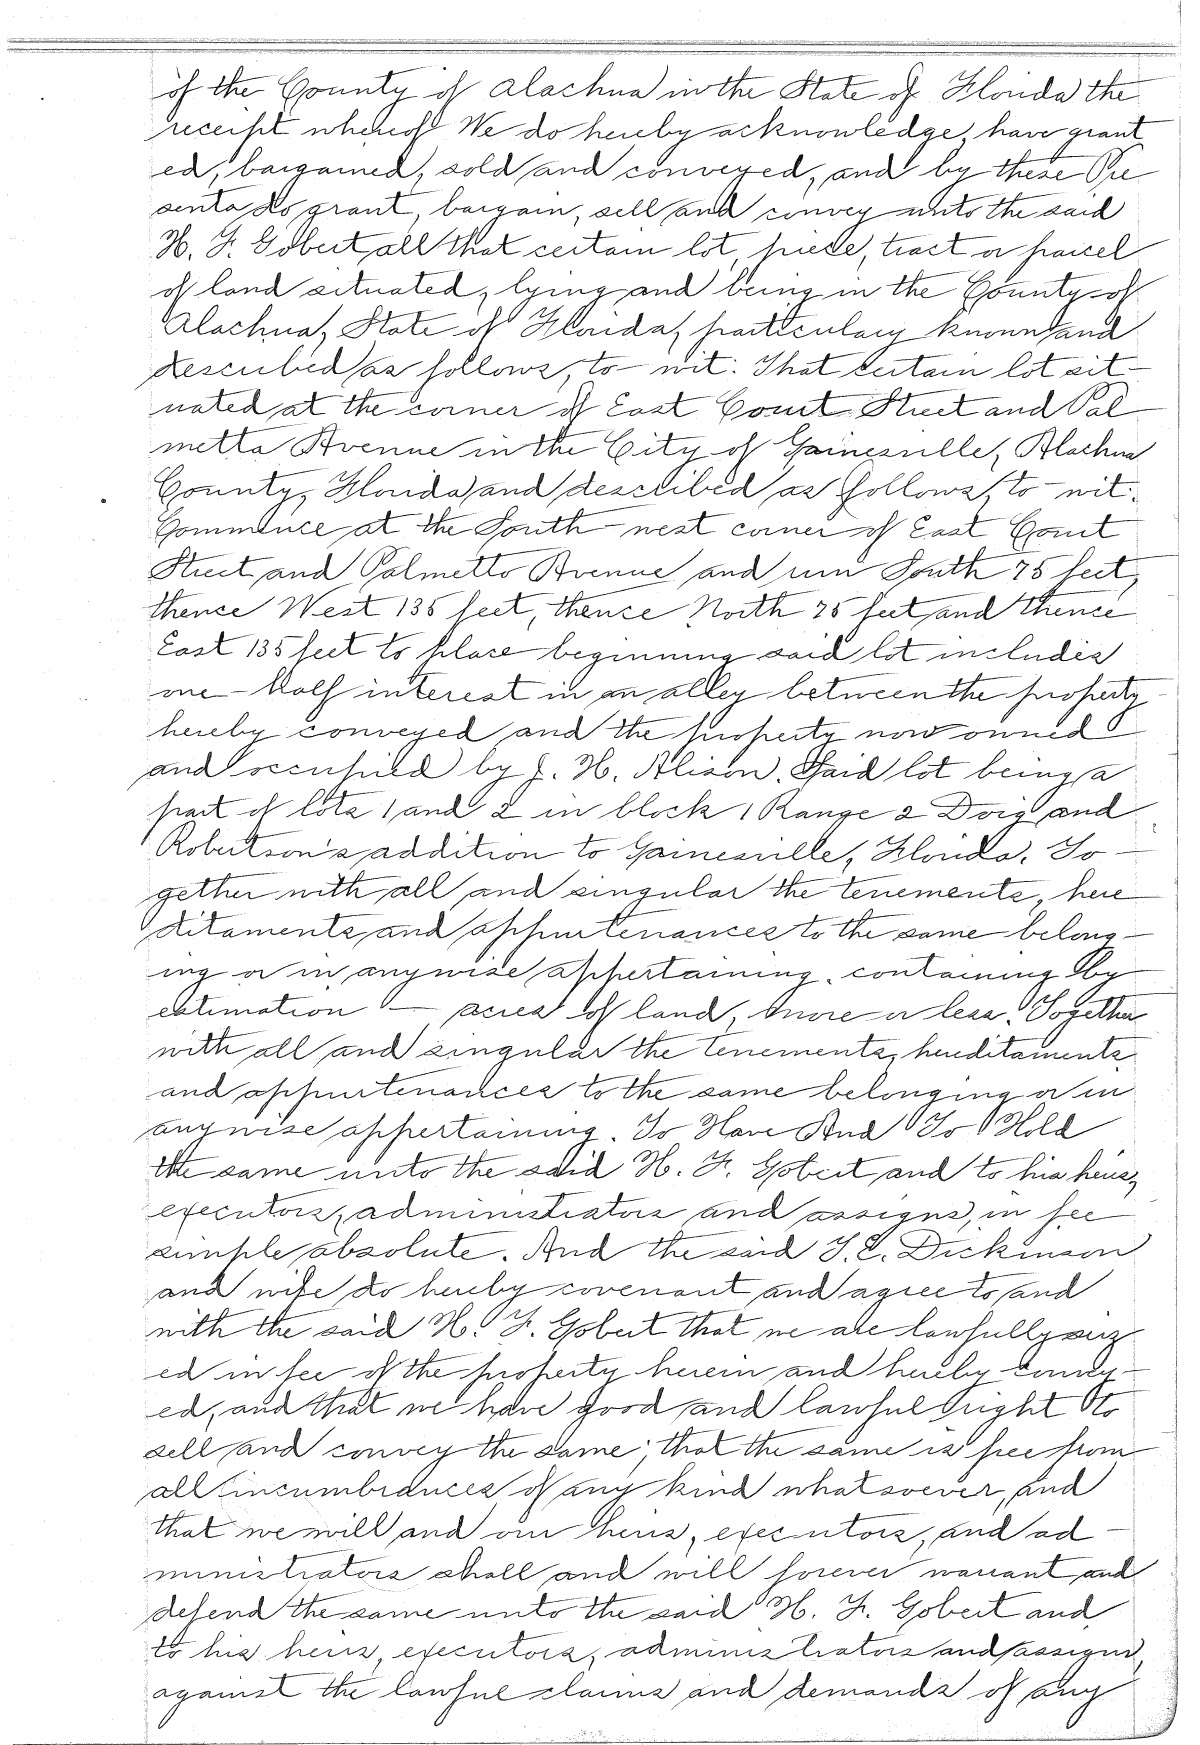 of the County of Alachua in the State of Florida the
receipt whereof We do hereby acknowledge, have grant
ed, bargained, sold and conveyed, and by these Pre
sents do grant, bargain, sell and convey unto the said
H. F. Gobert, all that certain lot, piece, tract or parcel
of land situated, lying and being in the County of
Alachua, State of Florida, particulary known and
described as follows, to-wit: That certain lot sit-
uated at the corner of East Court Street and Pal
metta Avenue in the City of Gainesville, Alachua
County, Florida and described as follows, to-wit:
Commence at the South-west corner of East Court
Street and Palmetto Avenue and run South 75 feet,
thence West 135 feet, thence North 75 feet and thence
East 135 feet to place beginning said lot includes
one-half interest in an alley between the property
hereby conveyed and the property now owned
and occupied by J. H. Alison. Said lot being a
part of lots 1 and 2 in block 1 Range 2 Doig and
Robertson's addition to Gainesville, Florida. To-
gether with all and singular the tenements, here
ditaments and appurtenances to the same belong-
ing or in anywise appertaining, containing by
estimation — acres of land, more or less. Together
with all and singular the tenements, hereditaments
and appurtenances to the same belonging or in
anywise appertaining. To Have And To Hold
the same unto the said H. F. Gobert and to his heirs,
executors, administrators and assigns, in fee
simple absolute. And the said T. E. Dickinson
and wife do hereby covenant and agree to and
with the said H. F. Gobert that we are lawfully seiz
ed in fee of the property herein and hereby convey-
ed, and that we have good and lawful right to
sell and convey the same; that the same is free from
all incumbrances of any kind whatsoever, and
that we will and our heirs, executors, and ad-
ministrators shall and will forever warrant and
defend the same unto the said H. F. Gobert and
to his heirs, executors, administrators and assigns,
against the lawful claims and demands of any